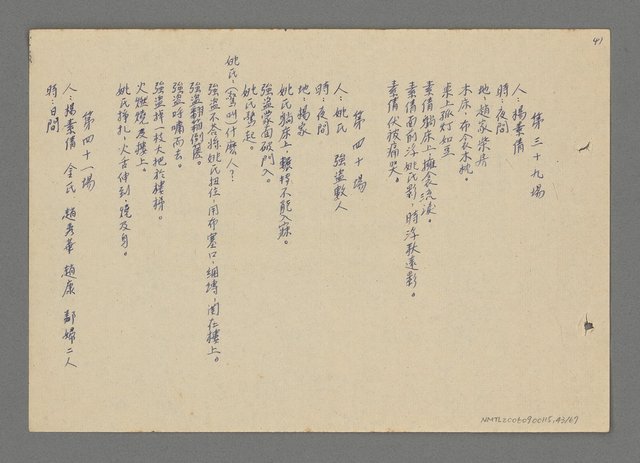 41
第三十九場
人：楊素倩
時：夜間
地：趙家柴房
木床，布衾木枕。
桌上孤灯如豆
素倩躺床上擁衾流淚。
素倩面前浮姚氏影，時浮耿遠影。
素倩伏被痛哭。
第四十場
人：姚氏 強盜數人
時：夜間
地：楊家
姚氏躺床上，輾轉不能入寐。
強盜蒙面破門入。
姚氏驚起。
姚氏：（驚叫）什麼人？
強盜不答將姚氏扭住，用布塞口，綑縛，關在樓上。
強盜翻箱倒篋。
強盜呼嘯而去。
強盜將一枝火把於樓梯。
火燃燒及樓上。
姚氏掙扎，火舌伸到，燒及身。
第四十一場
人：楊素倩 金氏 趙秀華 趙康 鄰婦二人
時：日間
NMTL20060900115,43/69